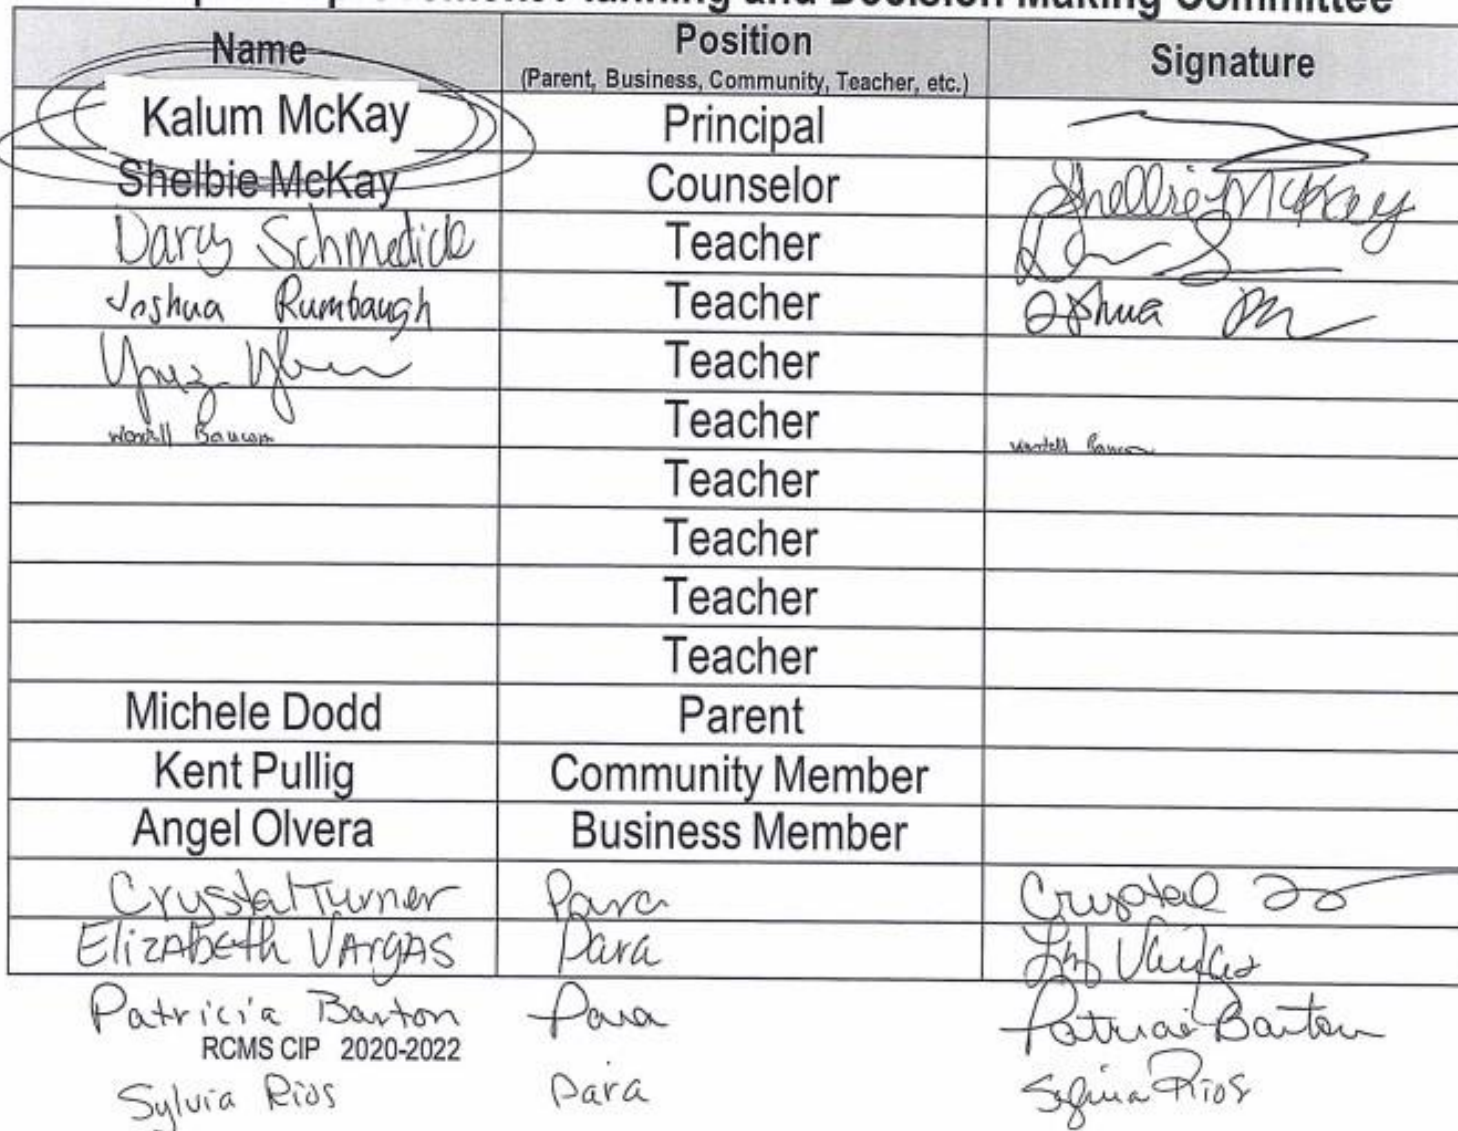 Planning and Decision Making Committee
Name Position Signature
(Parent, Business, Community, Teacher, etc.)
Kalum McKay Principal
Shelbie McKay Counselor Shelbie McKay
Darcy Schmedick Teacher
Joshua Rumbaugh Teacher Joshua
Teacher
Wendell Baucom Teacher Wendell Baucom
Teacher
Teacher
Teacher
Teacher
Michele Dodd Parent
Kent Pullig Community Member
Angel Olvera Business Member
Crystal Turner Para Crystal
Elizabeth Vargas Para Vargas
Patricia Barton Para Patricia Barton
RCMS CIP 2020-2022
Sylvia Rios Para Sylvia Rios